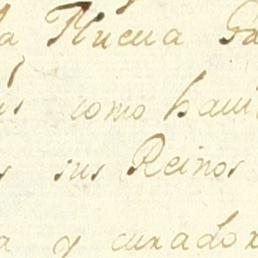 la Nueva Ga
como havi
s sus Reinos
a y curador